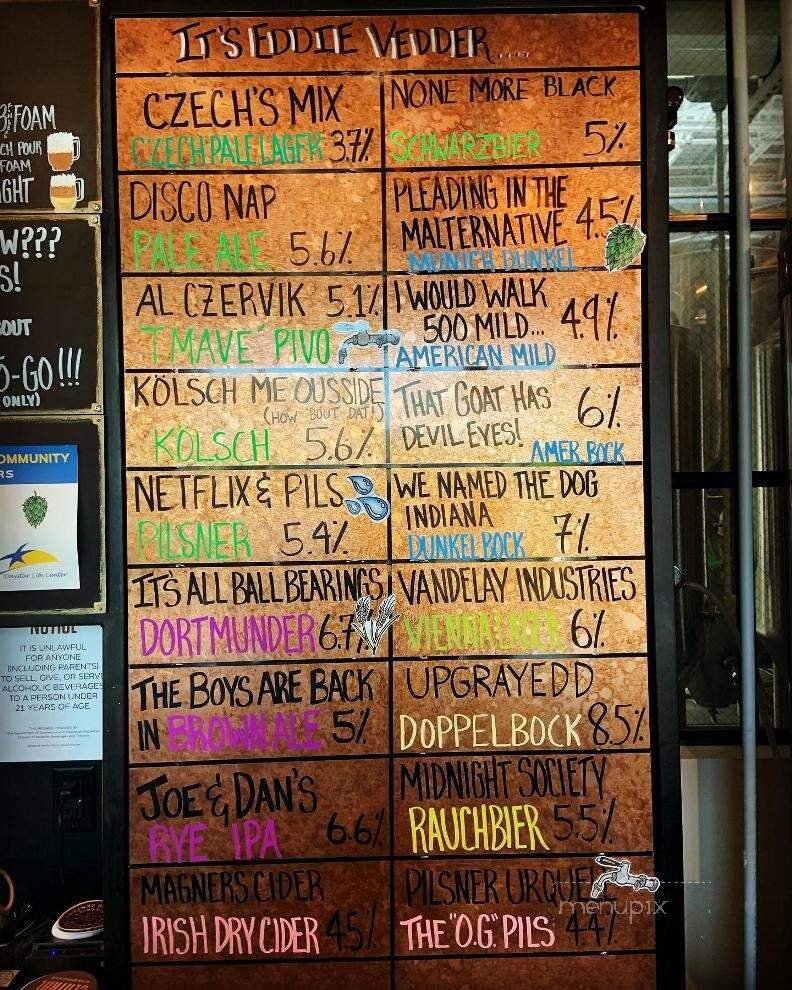 IT'S EDDIE VEDDER....
CZECH'S MIX
CZECH PALE LAGER 3.7%
DISCO NAP
PALE ALE 5.6%
AL CZERVIK 5.1%
"TMAVE" PIVO
KÖLSCH ME OUSSIDE
(HOW 'BOUT DAT!)
KÖLSCH 5.6%
NETFLIX & PILS
PILSNER 5.4%
IT'S ALL BALL BEARINGS
DORTMUNDER 6.7%
THE BOYS ARE BACK
IN BROWN ALE 5%
JOE & DAN'S
RYE IPA 6.6%
MAGNERS CIDER
IRISH DRY CIDER 4.5%
NONE MORE BLACK
SCHWARZBIER 5%
PLEADING IN THE
MALTERNATIVE 4.5%
MUNICH DUNKEL
I WOULD WALK
500 MILD... 4.9%
AMERICAN MILD
THAT GOAT HAS
DEVIL EYES! 6%
AMER. BOCK
WE NAMED THE DOG
INDIANA 7%
DUNKELBOCK
VANDELAY INDUSTRIES
VIENNA LAGER 6%
UPGRAYEDD
DOPPELBOCK 8.5%
MIDNIGHT SOCIETY
RAUCHBIER 5.5%
PILSNER URQUELL
THE "O.G." PILS 4.4%
menupix
FOAM
CH POUR
FOAM
GHT
W???
S!
OUT
O-GO!!!
ONLY)
OMMUNITY
RS
Daystar Life Center
NOTICE
IT IS UNLAWFUL
FOR ANYONE
(INCLUDING PARENTS)
TO SELL, GIVE, OR SERVE
ALCOHOLIC BEVERAGES
TO A PERSON UNDER
21 YEARS OF AGE.